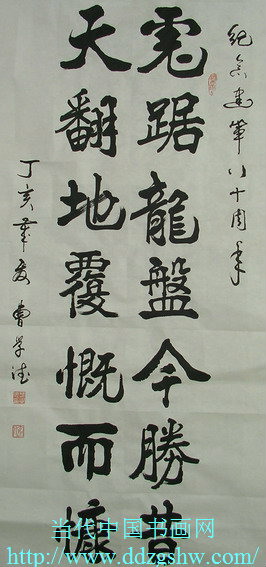 纪念建军八十周年
虎踞龍盤今勝昔
天翻地覆慨而慷
丁亥年夏曹学德
当代中国书画网
http://www.ddzgshw.com/